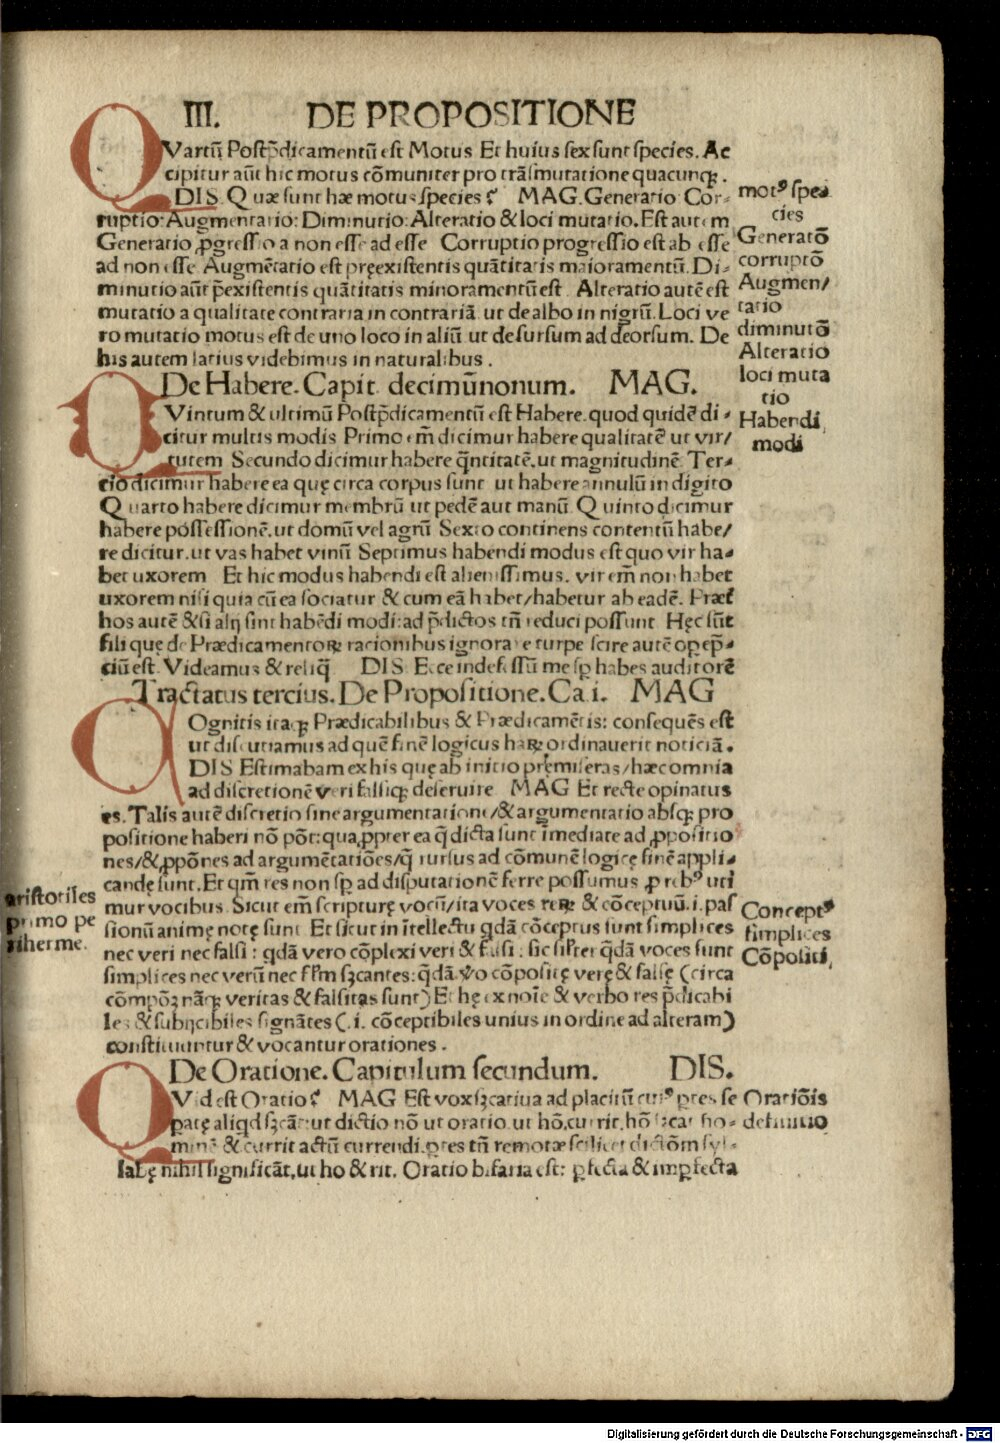 III. DE PROPOSITIONE
QVartū Postp̄dicamentū est Motus Et huius sex sunt species. Ac
cipitur aūt hic motus cōmuniter pro trāsmutatione quacunqꝫ.
DIS. Quæ sunt hæ motus species? MAG. Generatio Cor-
ruptio: Augmentatio: Diminutio: Alteratio & loci mutatio. Est autem
Generatio ꝓgressio a non esse ad esse Corruptio progressio est ab esse
ad non esse Augmētatio est pręexistentis quātitatis maioramentū. Di-
minutio aūt p̄existentis quātitatis minoramentū est. Alteratio autē est
mutatio a qualitate contraria in contrariā ut de albo in nigrū. Loci ve
ro mutatio motus est de uno loco in aliū ut desursum ad deorsum. De
his autem latius videbimus in naturalibus.
motꝰ spe
cies
Generatō
corruptō
Augmen/
tatio
diminutō
Alteratio
loci muta
tio
De Habere. Capit. decimūnonum. MAG.
QVintum & ultimū Postp̄dicamentū est Habere. quod quidē di-
citur multis modis Primo em̄ dicimur habere qualitatē ut vir/
tutem Secundo dicimur habere q̄ntitatē. ut magnitudinē Ter-
cio dicimur habere ea quę circa corpus sunt ut habere annulū in digito
Quarto habere dicimur membrū ut pedē aut manū. Quinto dicimur
habere possessionē. ut domū vel agrū Sexto continens contentū habe/
re dicitur. ut vas habet vinū Septimus habendi modus est quo vir ha-
bet uxorem Et hic modus habendi est alienissimus. vir em̄ non habet
uxorem nisi quia cū ea sociatur & cum eā habet/habetur ab eadē. Præt̄
hos autē & si alij sint habēdi modi: ad p̄dictos tn̄ reduci possunt Hęc sūt
fili quę de Prædicamentoꝝ racionibus ignorare turpe scire autē opep̄-
ciū est. Videamus & reliq̄ DIS Ecce indefessū me sꝑ habes auditorē
Habendi
modi
Tractatus tercius. De Propositione. Ca i. MAG
COgnitis itaqꝫ Prædicabilibus & Prædicamētis: consequēs est
ut discutiamus ad quē finē logicus haꝝ ordinauerit noticiā.
DIS Estimabam ex his quę ab inicio pręmiseras/hæc omnia
ad discretionē veri falsiqꝫ deseruire MAG Et recte opinatus
es. Talis autē discretio sine argumentatione/& argumentatio absqꝫ pro
positione haberi nō pōt: quapropter ea q̄ dicta sunt īmediate ad ꝓpositio
nes/& ꝓpōnes ad argumētatiōes/q̄ rursus ad cōmunē logicę finē appli-
candę sunt. Et qm̄ res non sꝑ ad disputationē ferre possumus ꝓ rebꝰ uti
mur vocibus. Sicut em̄ scripturę vocū/ita voces reꝝ & cōceptuū. i. pas
sionū animę notę sunt Et sicut in ītellectu q̄dā cōceptus sunt simplices
nec veri nec falsi: q̄dā vero cōplexi veri & falsi: sic silr̄ q̄dā voces sunt
simplices nec verū nec flm̄ sꝫcantes: q̄dā v̄o cōpositę verę & falsę (circa
cōmpōꝫ nāqꝫ veritas & falsitas sunt) Et hę ex noīe & verbo res p̄dicabi
les & subijcibiles signātes (.i. cōceptibiles unius in ordine ad alteram)
constituuntur & vocantur orationes.
aristotiles
primo pe
riherme.
Conceptꝰ
simplices
Cōpositi
De Oratione. Capitulum secundum. DIS.
QVid est Oratio? MAG Est vox sꝫcatiua ad placitū cuiꝰ p̱tes se
patę aliqd sꝫcāt: ut dictio nō ut oratio. ut hō. currit. hō sꝫcat ho-
minē & currit actū currendi. p̱tes tn̄ remotæ scilicet dictōm syl-
labę nihil significāt, ut ho & rit. Oratio bifaria est: ꝑfecta & imꝑfecta
Oratiōis
definitio
Digitalisierung gefördert durch die Deutsche Forschungsgemeinschaft - DFG